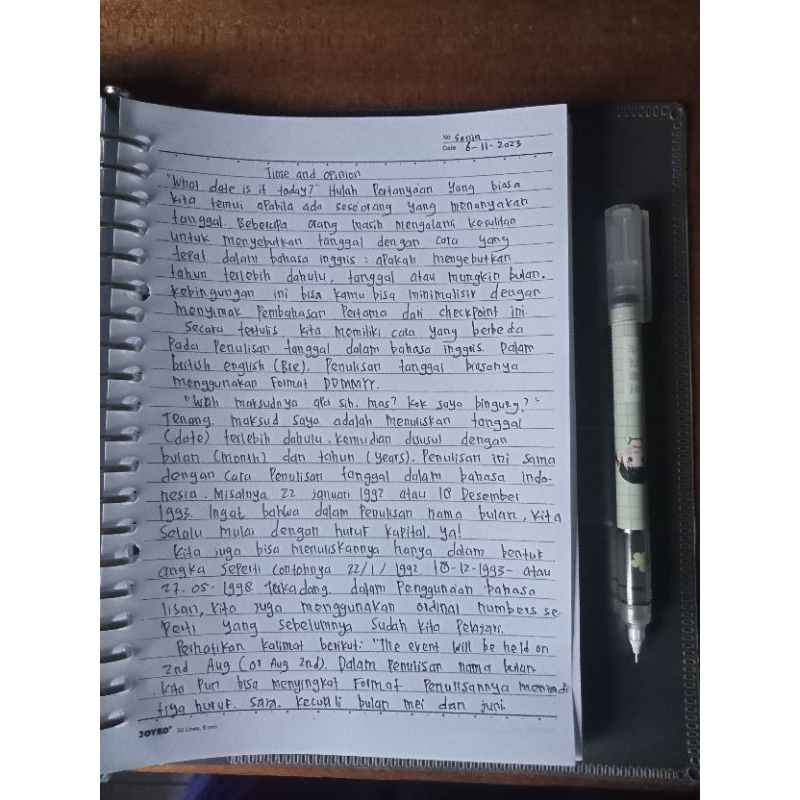 No Senin
Date 6-11-2023
Time and opinion
"What date is it today?" Itulah Pertanyaan Yang biasa
kita temui apabila ada seseorang yang menanyakan
tanggal. Beberapa orang masih mengalami kesulitan
untuk menyebutkan tanggal dengan cara yang
tepat dalam bahasa inggris: apakah menyebutkan
tahun terlebih dahulu, tanggal atau mungkin bulan.
kebingungan ini bisa kamu bisa minimalisir dengan
menyimak Pembahasan Pertama dari checkpoint ini.
Secara tertulis, kita memiliki cara yang berbeda
Pada Penulisan tanggal dalam bahasa inggris. Dalam
british english (Bre). Penulisan tanggal biasanya
menggunakan Format DDMMYY.
"Wah maksudnya apa sih, mas? kok saya bingung?"
Tenang. maksud saya adalah menuliskan tanggal
(date) terlebih dahulu. kemudian disusul dengan
bulan (month) dan tahun (years). Penulisan ini sama
dengan cara Penulisan tanggal dalam bahasa indo-
nesia. Misalnya 22 januari 1992 atau 10 Desember
1993. Ingat bahwa dalam Penulisan nama bulan, kita
Selalu mulai dengan huruf kapital, ya!
kita juga bisa menuliskannya hanya dalam bentuk
angka seperti contohnya 22/1/1992, 10-12-1993- atau
27.05-1998. Terkadang dalam Penggunaan bahasa
lisan, kita juga menggunakan ordinal numbers se-
Perti yang sebelumnya sudah kita Pelajari.
Perhatikan kalimat berikut: "The event will be held on
2nd Aug (or Aug 2nd). Dalam Penulisan nama bulan
kita Pun bisa menyingkat Format Penulisannya menjadi
tiga huruf. saja. kecuali bulan mei dan juni.
JOYKO 30 Lines, 6 mm